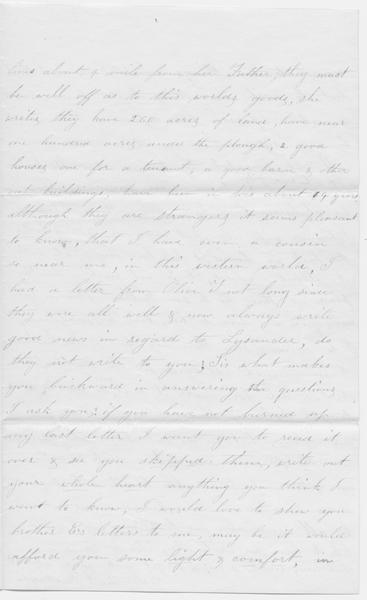 lives about a mile from her Father, they must
be well off as to this worlds goods, she
writes they have 260 acres of land, have near
one hundred acres under the plough, 2 good
houses one for a tenant, a good barn & other
out buildings, have been in this about 14 years
although they are strangers it seems pleasant
to know, that I have even a cousin
so near me, in this western world, I
had a letter from Oliver T not long since
they were all well & now always write
good news in regard to Lysander, do
they not write to you; Tis what makes
you backward in answering the questions
I ask you; if you have not burned up
my last letter I want you to read it
over & see you skipped them, write out
your whole heart anything you think I
want to know, I would love to show you
brother letters to me, may be it would
afford you some light & comfort, in